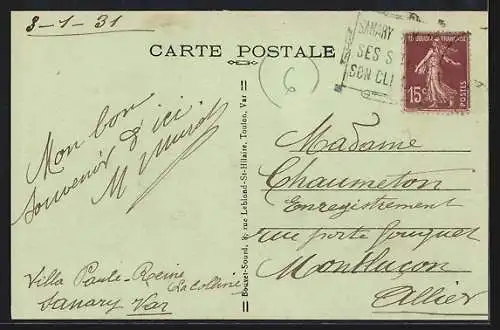 3-1-31
CARTE POSTALE
SANARY
SES S
SON CLI
15c
POSTES
6
Mon bon
souvenir d'ici
M
Madame
Chaumeton
Enregistrement
rue porte fouquet
Montluçon
Allier
Villa Paule-Reine
La Colline
Sanary Var
Bouxet-Sourd, 8, rue Leblond-St-Hilaire, Toulon, Var